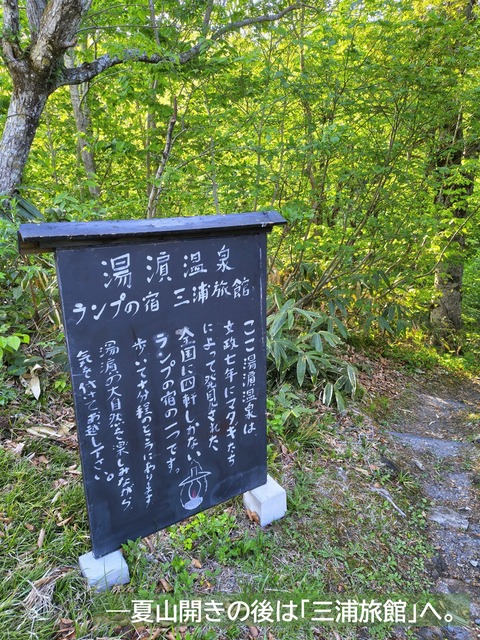 湯浜温泉
ランプの宿 三浦旅館
ここ湯濱温泉は
文政七年にマタギたち
によって発見された
全国に四軒しかない
ランプの宿の一つです。
歩いて十分程のところにあります
湯濱の大自然を楽しみながら
気を付けてお越し下さい。
―夏山開きの後は「三浦旅館」へ。